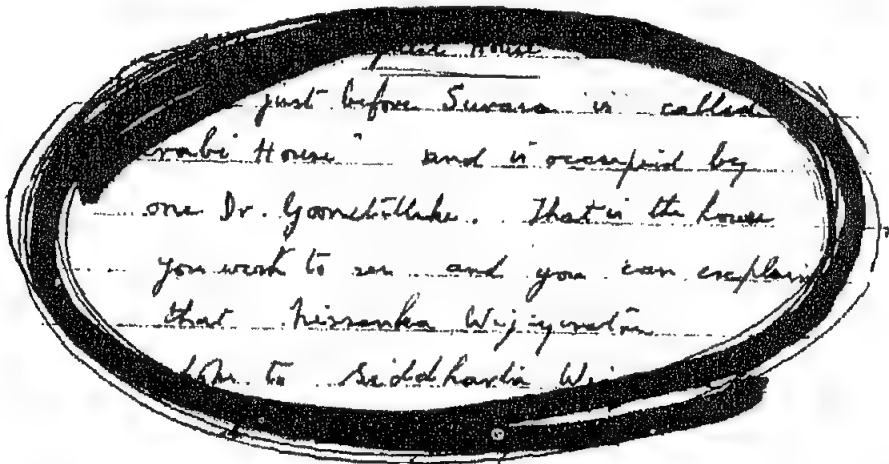 House
just before Suvasa is called
House" and is occupied by
one Dr. Goonetilleke. That is the house
you want to see and you can explain
that Nissanka Wijeyeratne
to Siddhartha